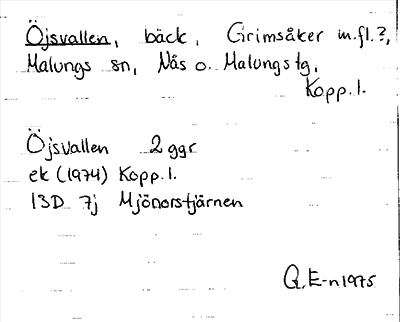 Öjsvallen, bäck, Grimsåker m.fl.?,
Malungs sn, Nås o. Malungs tg,
Kopp.l.
Öjsvallen 2 ggr
ek (1974) Kopp.l.
13D 7j Mjönorstjärnen
G.E-n 1975